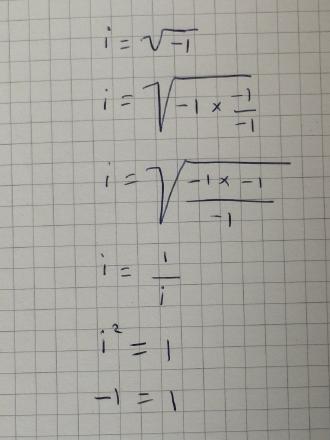 i = √-1
i = √-1 × -1/-1
i = √-1 × -1/-1
i = 1/i
i² = 1
-1 = 1